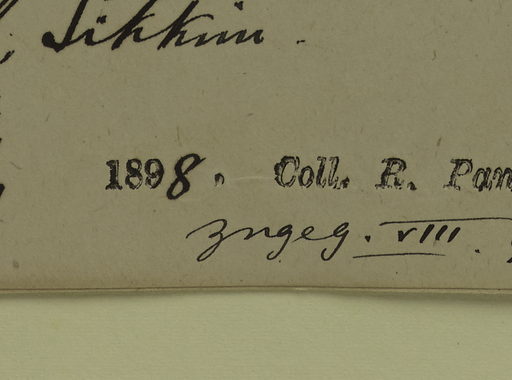 Sikkim.
1898. Coll. R. Pan
zngeg. VIII.